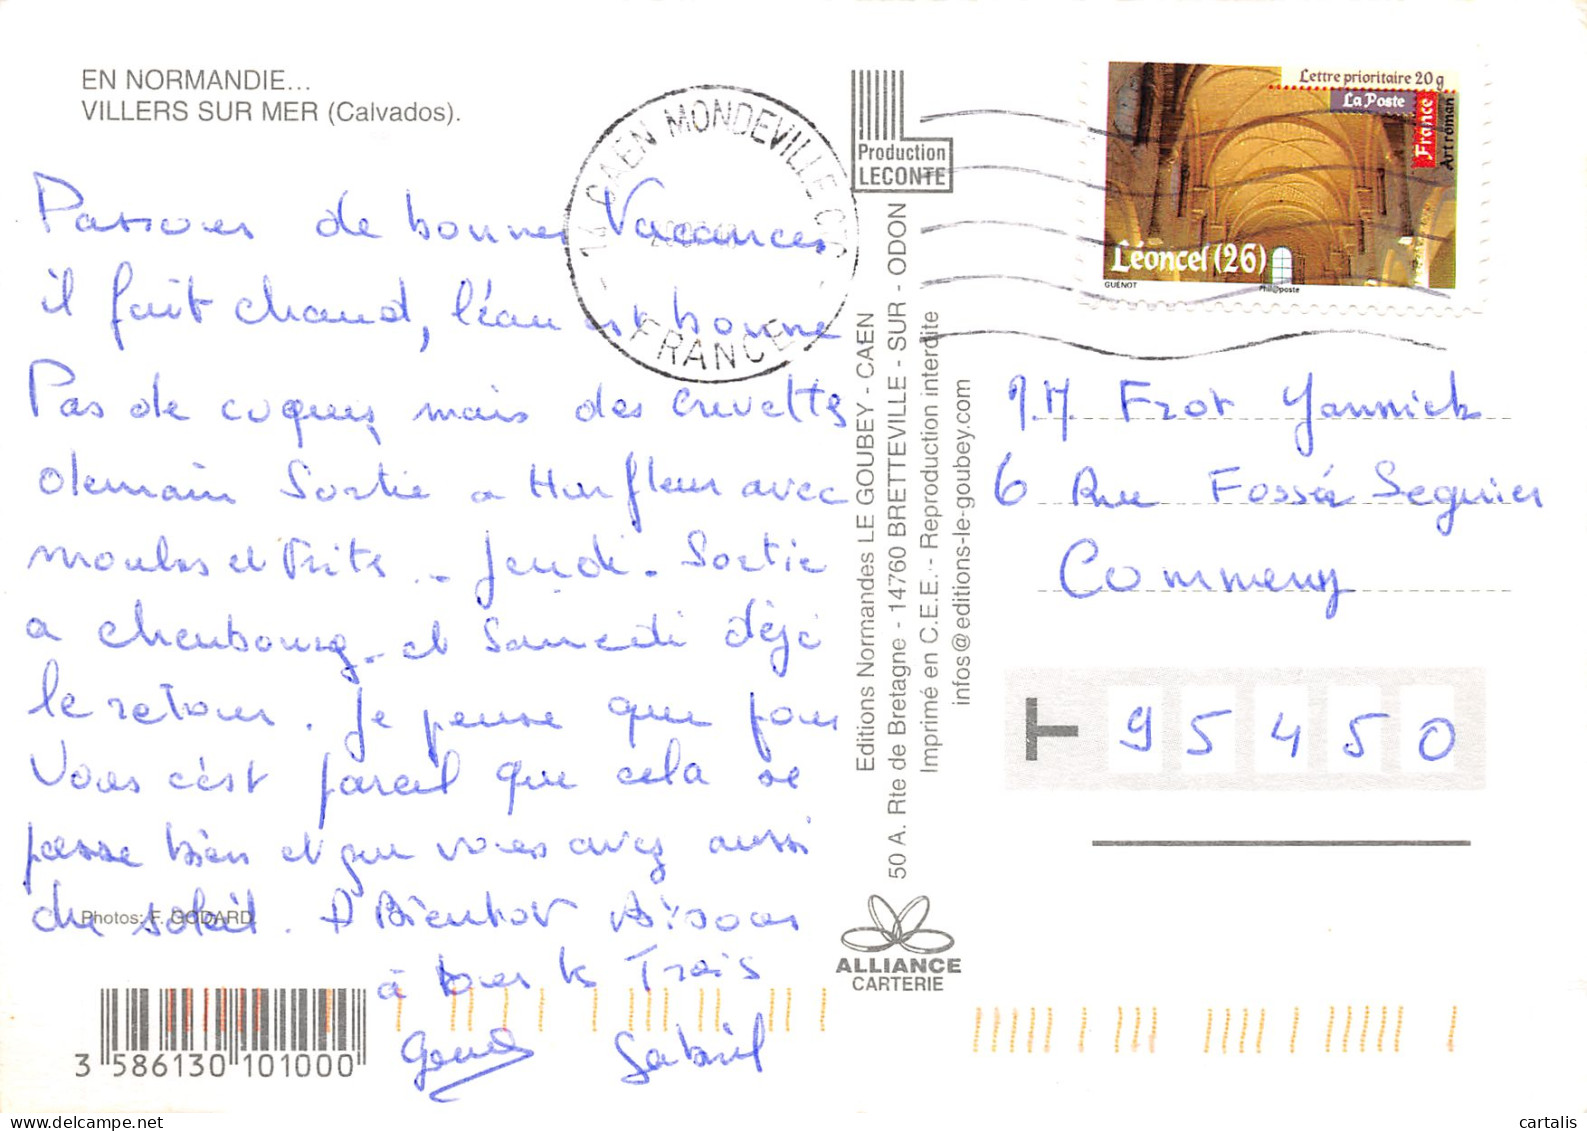 EN NORMANDIE...
VILLERS SUR MER (Calvados).
Passons de bonnes Vacances
il fait chaud, l'éau est bonne
Pas de coques mais des crevettes
demain Sortie a Harfleur avec
moules et Frites.. Jeudi. Sortie
a cherbourg - et Samedi déjé
le retour. Je pense que pour
Vous c'ést pareil que cela se
passe bien et que vous avez aussi
du soleil. A Bientot Bisous
à tous les Trois
Gabriel
Photos: F. GODARD
3 586130 101000
14 CAEN MONDEVILLE CTC
FRANCE
Production
LECONTE
Editions Normandes LE GOUBEY - CAEN
50 A. Rte de Bretagne - 14760 BRETTEVILLE - SUR - ODON
Imprimé en C.E.E. - Reproduction interdite
infos@editions-le-goubey.com
ALLIANCE
CARTERIE
Lettre prioritaire 20 g
La Poste
France
Art roman
Léoncel (26)
GUENOT
Phil@poste
M. Frot Yannick
6 Rue Fossé Seguier
Commeny
T 95450
cartalis